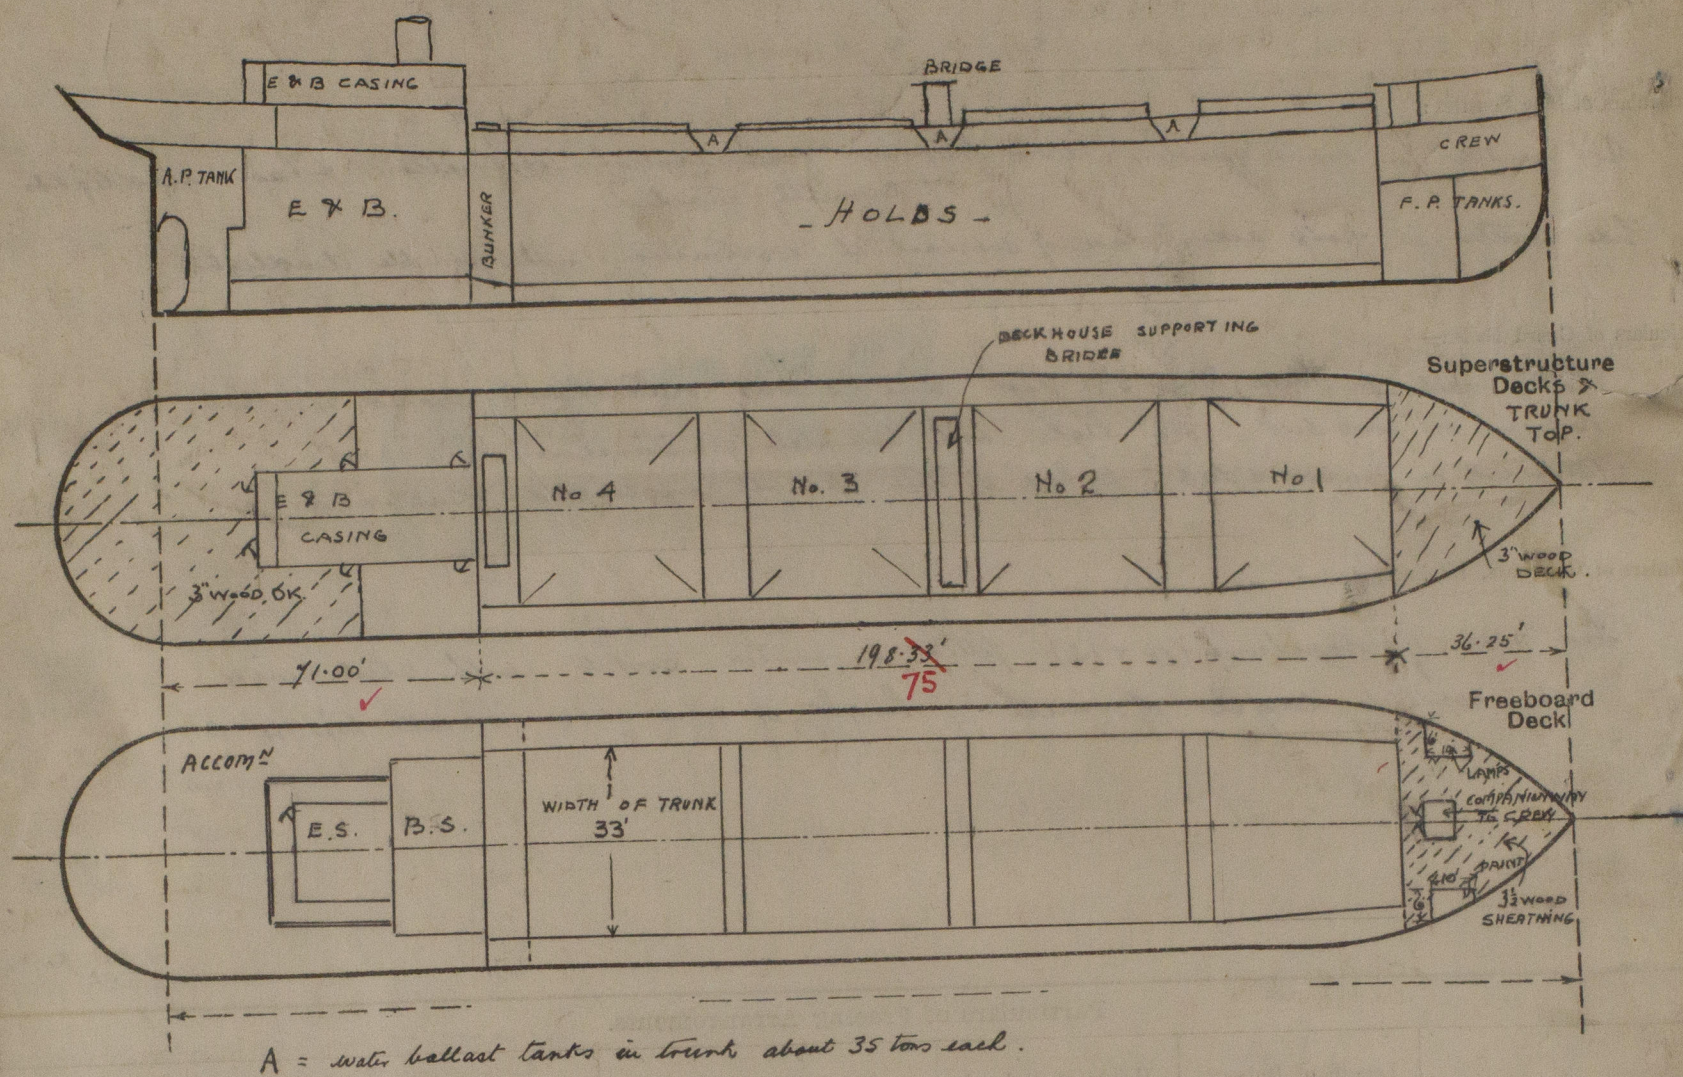 E & B CASING
BRIDGE
A
A
A
A.P. TANK
E & B.
BUNKER
- HOLDS -
CREW
F. P. TANKS.
DECKHOUSE SUPPORTING
BRIDGE
Superstructure
Decks &
TRUNK
TOP.
No 4
No. 3
No 2
No 1
E & B
CASING
3" WOOD DK.
3" WOOD
DECK.
71.00'
198.33'
75
36.25'
Freeboard
Deck
ACCOMN
E.S.
B.S.
WIDTH OF TRUNK
33'
LAMPS
COMPANIONWAY
TO CREW
PAINT
3½ WOOD
SHEATHING
A = water ballast tanks in trunk about 35 tons each.